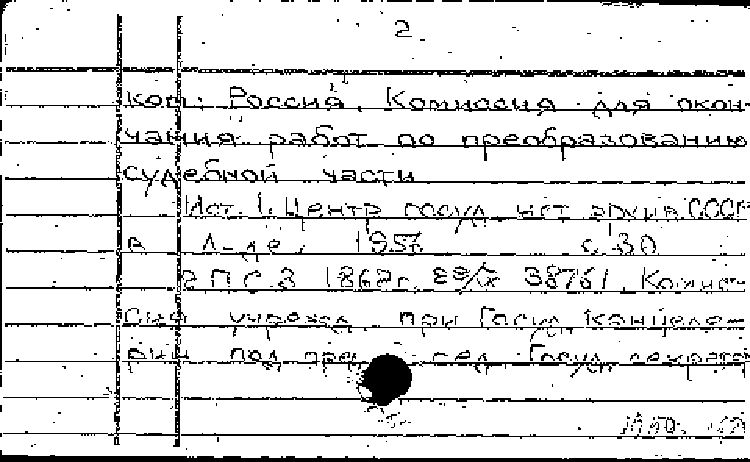 2
кат: Россия. Комиссия для окон-
чания работ по преобразованию
судебной части
Ист. 1. Центр госуд. ист архив СССР
в Л-де, 1956 с. 30
2 ПСЗ 1862г. 38761. Комис-
сия учрежд. при Госуд. канцеля-
рии под пред сед. Госуд. секрета